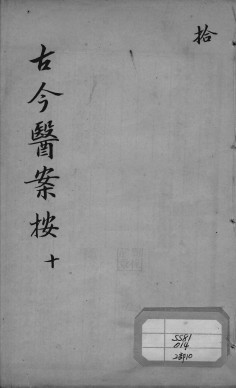 拾
古今醫案按 十
5581
014